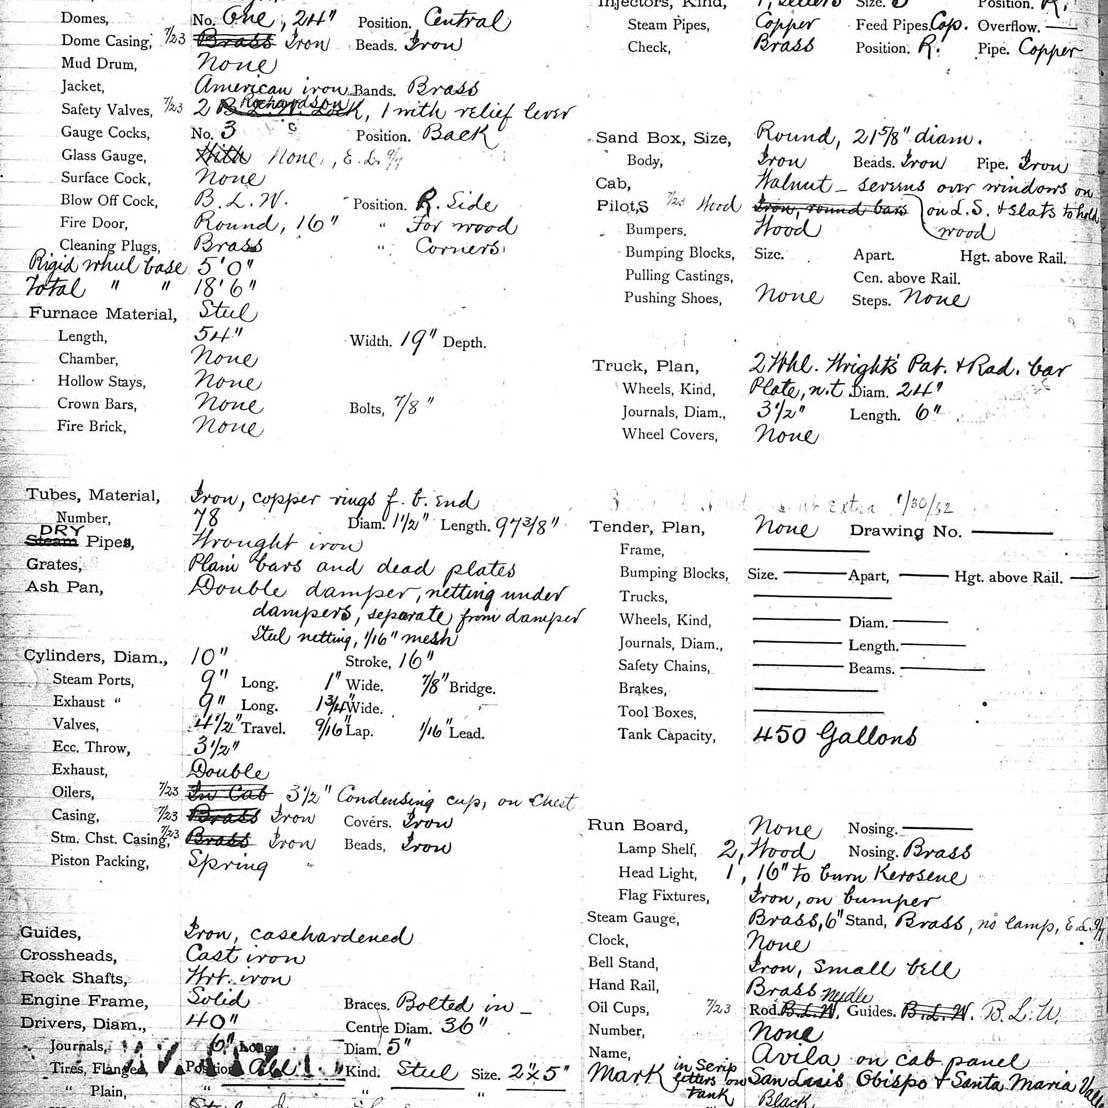 Domes, No. One, 24" Position. Central
Dome Casing, 7/23 Brass Iron Beads. Iron
Mud Drum, None
Jacket, American iron Bands. Brass
Safety Valves, 7/23 2 Richardson B.L.W. Lock, 1 with relief lever
Gauge Cocks, No. 3 Position. Back
Glass Gauge, With None, E.L.
Surface Cock, None
Blow Off Cock, B.L.W. Position. R. Side
Fire Door, Round, 16" " For wood
Cleaning Plugs, Brass " Corners
Rigid wheel base 5'0"
Total " " 18'6"
Furnace Material, Steel
Length, 54" Width. 19" Depth.
Chamber, None
Hollow Stays, None
Crown Bars, None Bolts, 7/8"
Fire Brick, None
Tubes, Material, Iron, copper rings f. b. end
Number, 78 Diam. 1 1/2" Length. 97 3/8"
DRY
Steam Pipes, Wrought iron
Grates, Plain bars and dead plates
Ash Pan, Double damper, netting under
dampers, separate from damper
Steel netting, 1/16" mesh
Cylinders, Diam., 10" Stroke, 16"
Steam Ports, 9" Long. 1" Wide. 7/8" Bridge.
Exhaust " 9" Long. 1 3/4" Wide.
Valves, 4 1/2" Travel. 9/16" Lap. 1/16" Lead.
Ecc. Throw, 3 1/2"
Exhaust, Double
Oilers, 7/23 In Cab 3 1/2" Condensing cup, on Chest
Casing, 7/23 Brass Iron Covers. Iron
Stm. Chst. Casing, 7/23 Brass Iron Beads, Iron
Piston Packing, Spring
Guides, Iron, casehardened
Crossheads, Cast iron
Rock Shafts, Wrt. iron
Engine Frame, Solid Braces. Bolted in
Drivers, Diam., 40" Centre Diam. 36"
Journals, 6" Long. Diam. 5"
Tires, Flange Position Kind. Steel Size. 2"x5"
" Plain, " " "
Injectors, Kind, 1, Sellers Size. 3 Position. R.
Steam Pipes, Copper Feed Pipes. Cop. Overflow.
Check, Brass Position. R. Pipe. Copper
Sand Box, Size, Round, 21 5/8" diam.
Body, Iron Beads. Iron Pipe. Iron
Cab, Walnut - screens over windows on
Pilots 7/23 Wood Iron, round bars on L.S. & slats to hold
wood
Bumpers, Wood
Bumping Blocks, Size. Apart. Hgt. above Rail.
Pulling Castings, Cen. above Rail.
Pushing Shoes, None Steps. None
Truck, Plan, 2 Whl. Wright's Pat. & Rad. bar
Wheels, Kind, Plate, n.t. Diam. 24"
Journals, Diam., 3 1/2" Length. 6"
Wheel Covers, None
Extra 1/30/82
Tender, Plan, None Drawing No.
Frame,
Bumping Blocks, Size. Apart, Hgt. above Rail.
Trucks,
Wheels, Kind, Diam.
Journals, Diam., Length.
Safety Chains, Beams.
Brakes,
Tool Boxes,
Tank Capacity, 450 Gallons
Run Board, None Nosing.
Lamp Shelf, 2, Wood Nosing. Brass
Head Light, 1, 16" to burn Kerosene
Flag Fixtures, Iron, on bumper
Steam Gauge, Brass, 6" Stand, Brass, no lamp, E.L.
Clock, None
Bell Stand, Iron, small bell
Hand Rail, Brass
Oil Cups, 7/23 Rod. B.L.W. needle Guides. B.L.W. B.L.W.
Number, None
Name, Avila on cab panel
Mark in Scrip letters on tank San Luis Obispo & Santa Maria Valle
Black